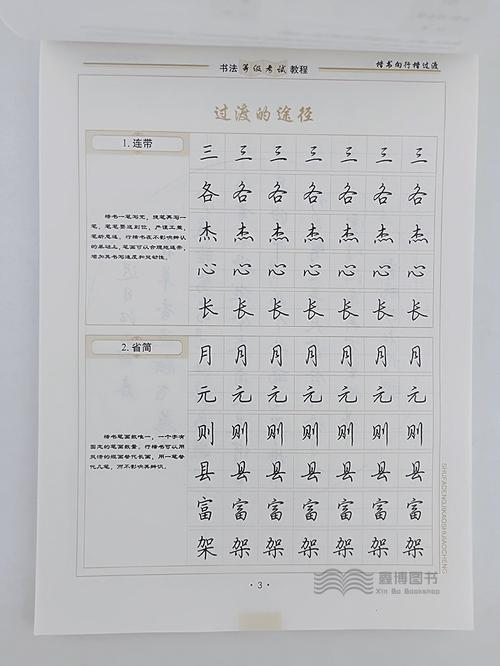 书法等级考试教程
楷书向行楷过渡
过渡的途径
1. 连带
楷书一笔写完，提笔再写一
笔，笔笔要送到位，严谨工整，
笔断意连。行楷书在不影响辨认
的基础上，笔画可以合理地连带，
增加其书写速度和灵动性。
三 三 三 三 三 三
各 各 各 各 各 各
杰 杰 杰 杰 杰 杰
心 心 心 心 心 心
长 长 长 长 长 长
2. 省简
楷书笔画数唯一，一个字有
固定的笔画数量。行楷书可以用
灵活的短画替代长画，用一笔替
代几笔，而不影响其辨识。
月 月 月 月 月 月
元 元 元 元 元 元
则 则 则 则 则 则
县 县 县 县 县 县
富 富 富 富 富 富
架 架 架 架 架 架
SHUFADENGJIKAOSHIJIAOCHENG
·3·
鑫博图书
Xin Bo Bookshop